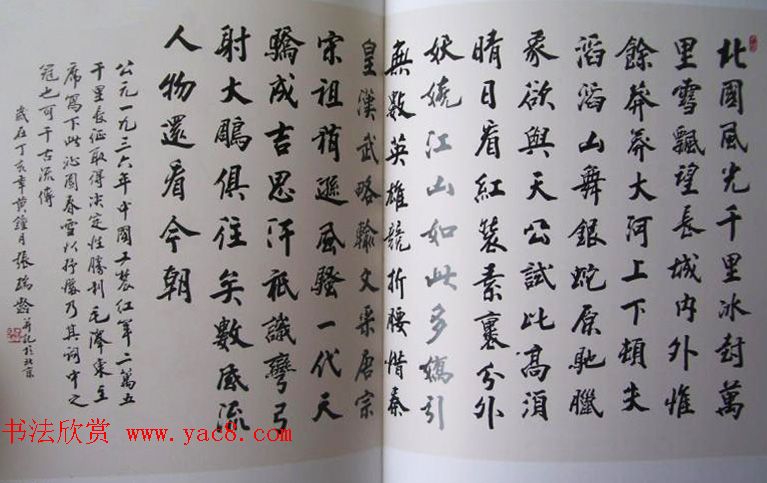 北國風光千里冰封萬
里雪飄望長城内外惟
餘莽莽大河上下頓失
滔滔山舞銀蛇原馳臘
象欲與天公試比高須
晴日看紅裝素裹分外
妖嬈江山如此多嬌引
無數英雄競折腰惜秦
皇漢武略輸文采唐宗
宋祖稍遜風騷一代天
驕成吉思汗祇識彎弓
射大鵰俱往矣數風流
人物還看今朝
公元一九三六年中國工農紅軍二萬五
千里長征取得決定性勝利毛澤東主
席寫下此沁園春雪以抒懷乃其詞中之
冠也可千古流傳
歲在丁亥年黄鐘月張瑞齡并記於北京
书法欣赏 www.yac8.com